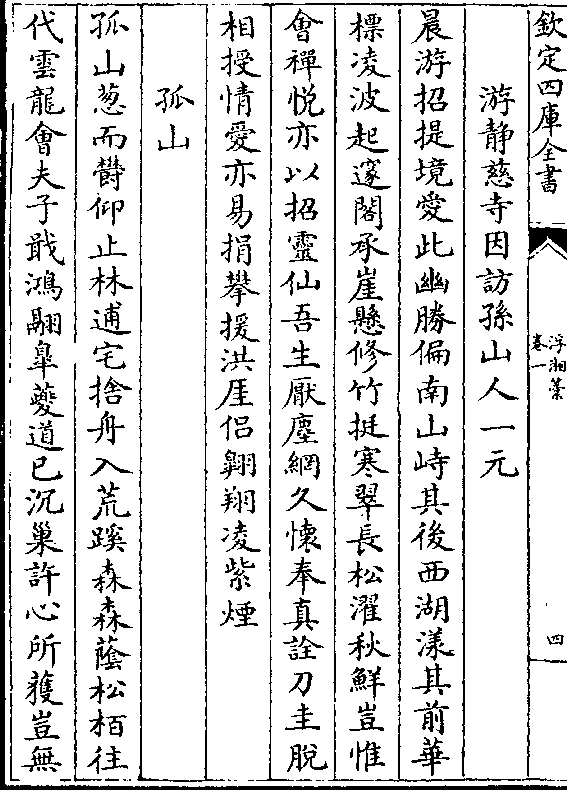 欽定四庫全書
浮湘藁
卷一
四
游静慈寺因訪孫山人一元
晨游招提境愛此幽勝偏南山峙其後西湖漾其前華
標凌波起邃閣承崖懸修竹挺寒翠長松濯秋鮮豈惟
會禪悦亦以招靈仙吾生厭塵網久懷奉真詮刀圭脫
相授情愛亦易捐攀援洪厓侣翺翔凌紫煙
孤山
孤山葱而欝仰止林逋宅捨舟入荒蹊森森蔭松栢往
代雲龍會夫子戢鴻翮臯夔道已沉巢許心所獲豈無